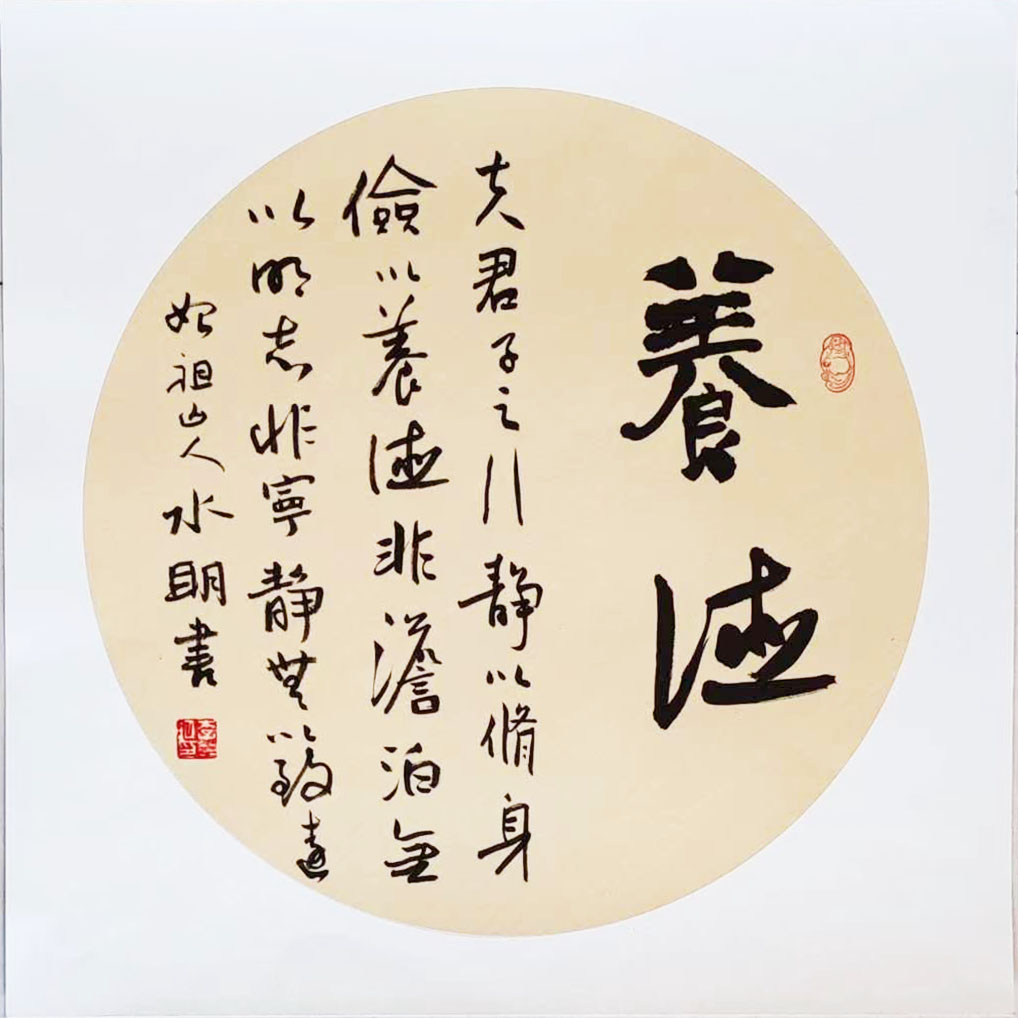 養德
夫君子之行靜以脩身
儉以養德非澹泊無
以明志非寧靜無以致遠
始祖山人水明書